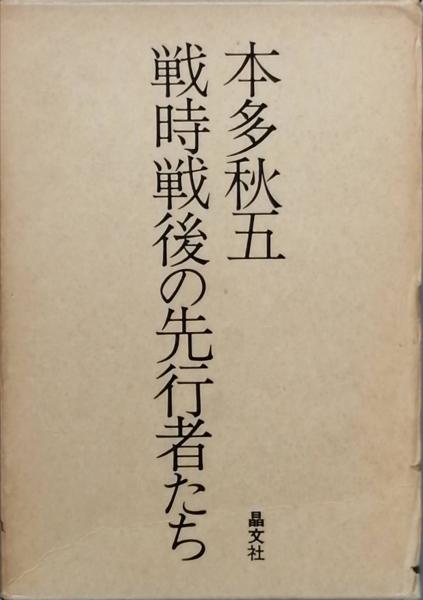 本多秋五
戦時戦後の先行者たち
晶文社